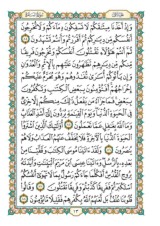 الجزء الأول سورة البقرة
وَإِذْ أَخَذْنَا مِيثَاقَكُمْ لَا تَسْفِكُونَ دِمَآءَكُمْ وَلَا تُخْرِجُونَ
أَنفُسَكُم مِّن دِيَـٰرِكُمْ ثُمَّ أَقْرَرْتُمْ وَأَنتُمْ تَشْهَدُونَ ٨٤
ثُمَّ أَنتُمْ هَـٰٓؤُلَآءِ تَقْتُلُونَ أَنفُسَكُمْ وَتُخْرِجُونَ فَرِيقًا
مِّنكُم مِّن دِيَـٰرِهِمْ تَظَـٰهَرُونَ عَلَيْهِم بِٱلْإِثْمِ وَٱلْعُدْوَٰنِ
وَإِن يَأْتُوكُمْ أُسَـٰرَىٰ تُفَـٰدُوهُمْ وَهُوَ مُحَرَّمٌ عَلَيْكُمْ
إِخْرَاجُهُمْ أَفَتُؤْمِنُونَ بِبَعْضِ ٱلْكِتَـٰبِ وَتَكْفُرُونَ
بِبَعْضٍ فَمَا جَزَآءُ مَن يَفْعَلُ ذَٰلِكَ مِنكُمْ إِلَّا خِزْىٌ
فِى ٱلْحَيَوٰةِ ٱلدُّنْيَا وَيَوْمَ ٱلْقِيَـٰمَةِ يُرَدُّونَ إِلَىٰٓ أَشَدِّ ٱلْعَذَابِ
وَمَا ٱللَّهُ بِغَـٰفِلٍ عَمَّا تَعْمَلُونَ ٨٥ أُو۟لَـٰٓئِكَ ٱلَّذِينَ ٱشْتَرَوُا۟
ٱلْحَيَوٰةَ ٱلدُّنْيَا بِٱلْـَٔاخِرَةِ فَلَا يُخَفَّفُ عَنْهُمُ ٱلْعَذَابُ
وَلَا هُمْ يُنصَرُونَ ٨٦ وَلَقَدْ ءَاتَيْنَا مُوسَى ٱلْكِتَـٰبَ وَقَفَّيْنَا مِنۢ
بَعْدِهِۦ بِٱلرُّسُلِ وَءَاتَيْنَا عِيسَى ٱبْنَ مَرْيَمَ ٱلْبَيِّنَـٰتِ وَأَيَّدْنَـٰهُ
بِرُوحِ ٱلْقُدُسِ أَفَكُلَّمَا جَآءَكُمْ رَسُولٌۢ بِمَا لَا تَهْوَىٰٓ أَنفُسُكُمُ
ٱسْتَكْبَرْتُمْ فَفَرِيقًا كَذَّبْتُمْ وَفَرِيقًا تَقْتُلُونَ ٨٧ وَقَالُوا۟
قُلُوبُنَا غُلْفٌۢ بَل لَّعَنَهُمُ ٱللَّهُ بِكُفْرِهِمْ فَقَلِيلًا مَّا يُؤْمِنُونَ ٨٨
١٣